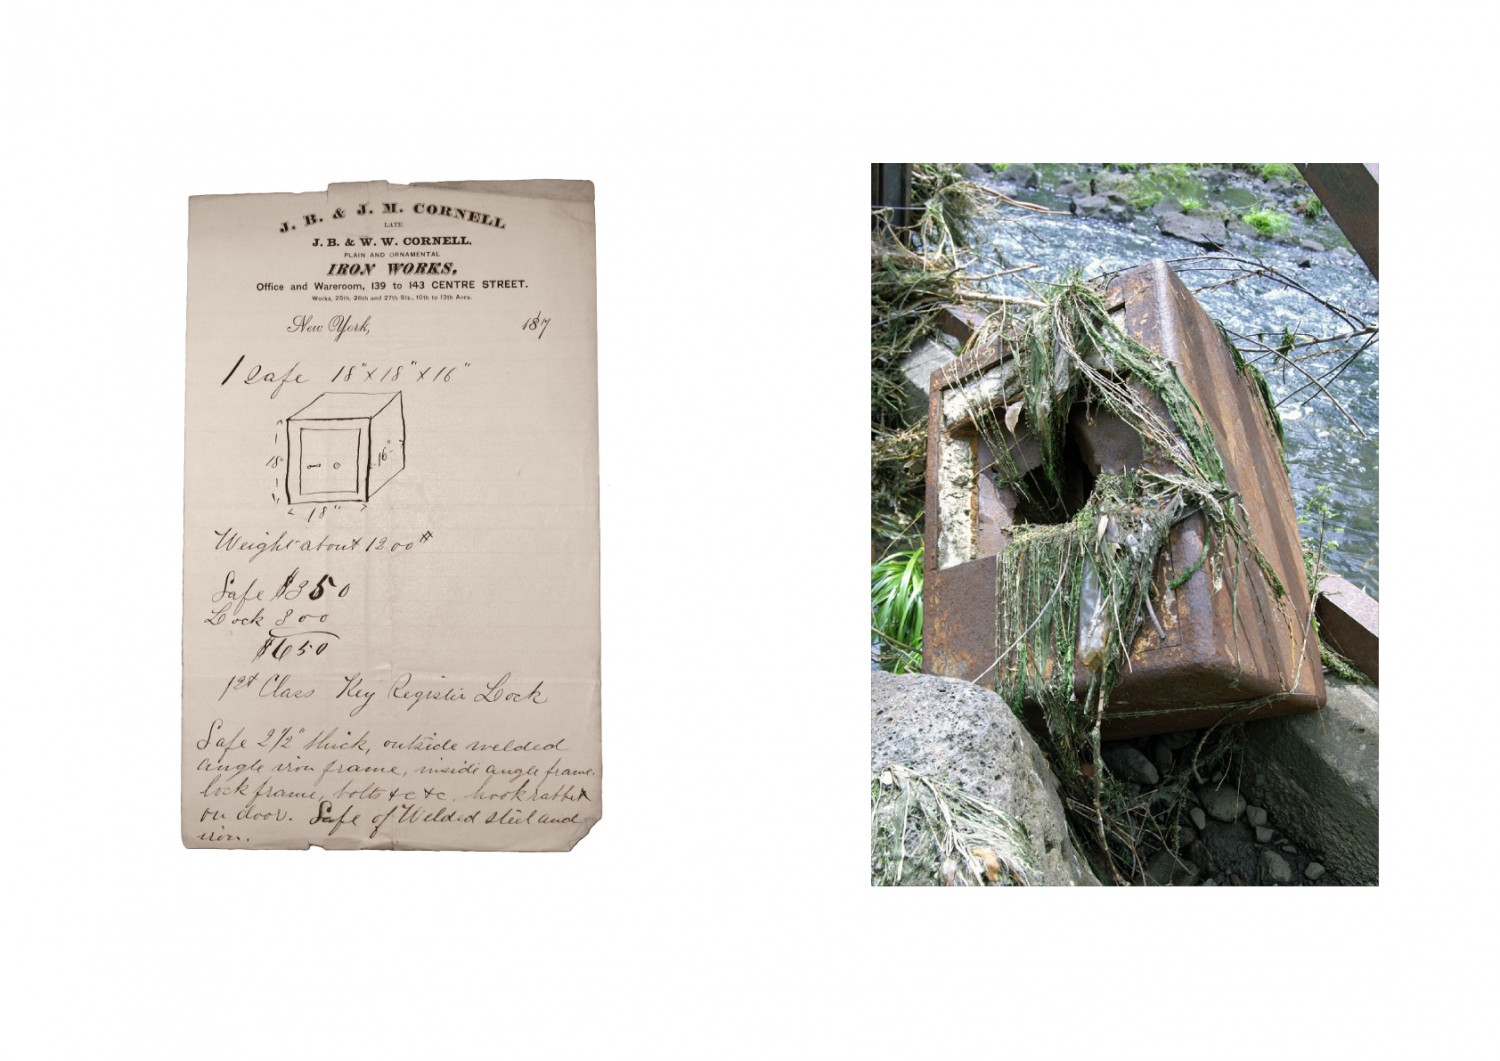 J. B. & J. M. CORNELL
LATE
J. B. & W. W. CORNELL,
PLAIN AND ORNAMENTAL
IRON WORKS,
Office and Wareroom, 139 to 143 CENTRE STREET.
Works, 25th, 26th and 27th Sts., 10th to 13th Aves.
New York, 187
1 Safe 18" x 18" x 16"
18"
16"
18"
Weight about 1200 #
Safe $350
Lock 300
$650
1st Class Key Register Lock
Safe 2 1/2" thick, outside welded
angle iron frame, inside angle frame.
lock frame, bolts &c &c. hook rabbet
on door. Safe of Welded steel and
iron.